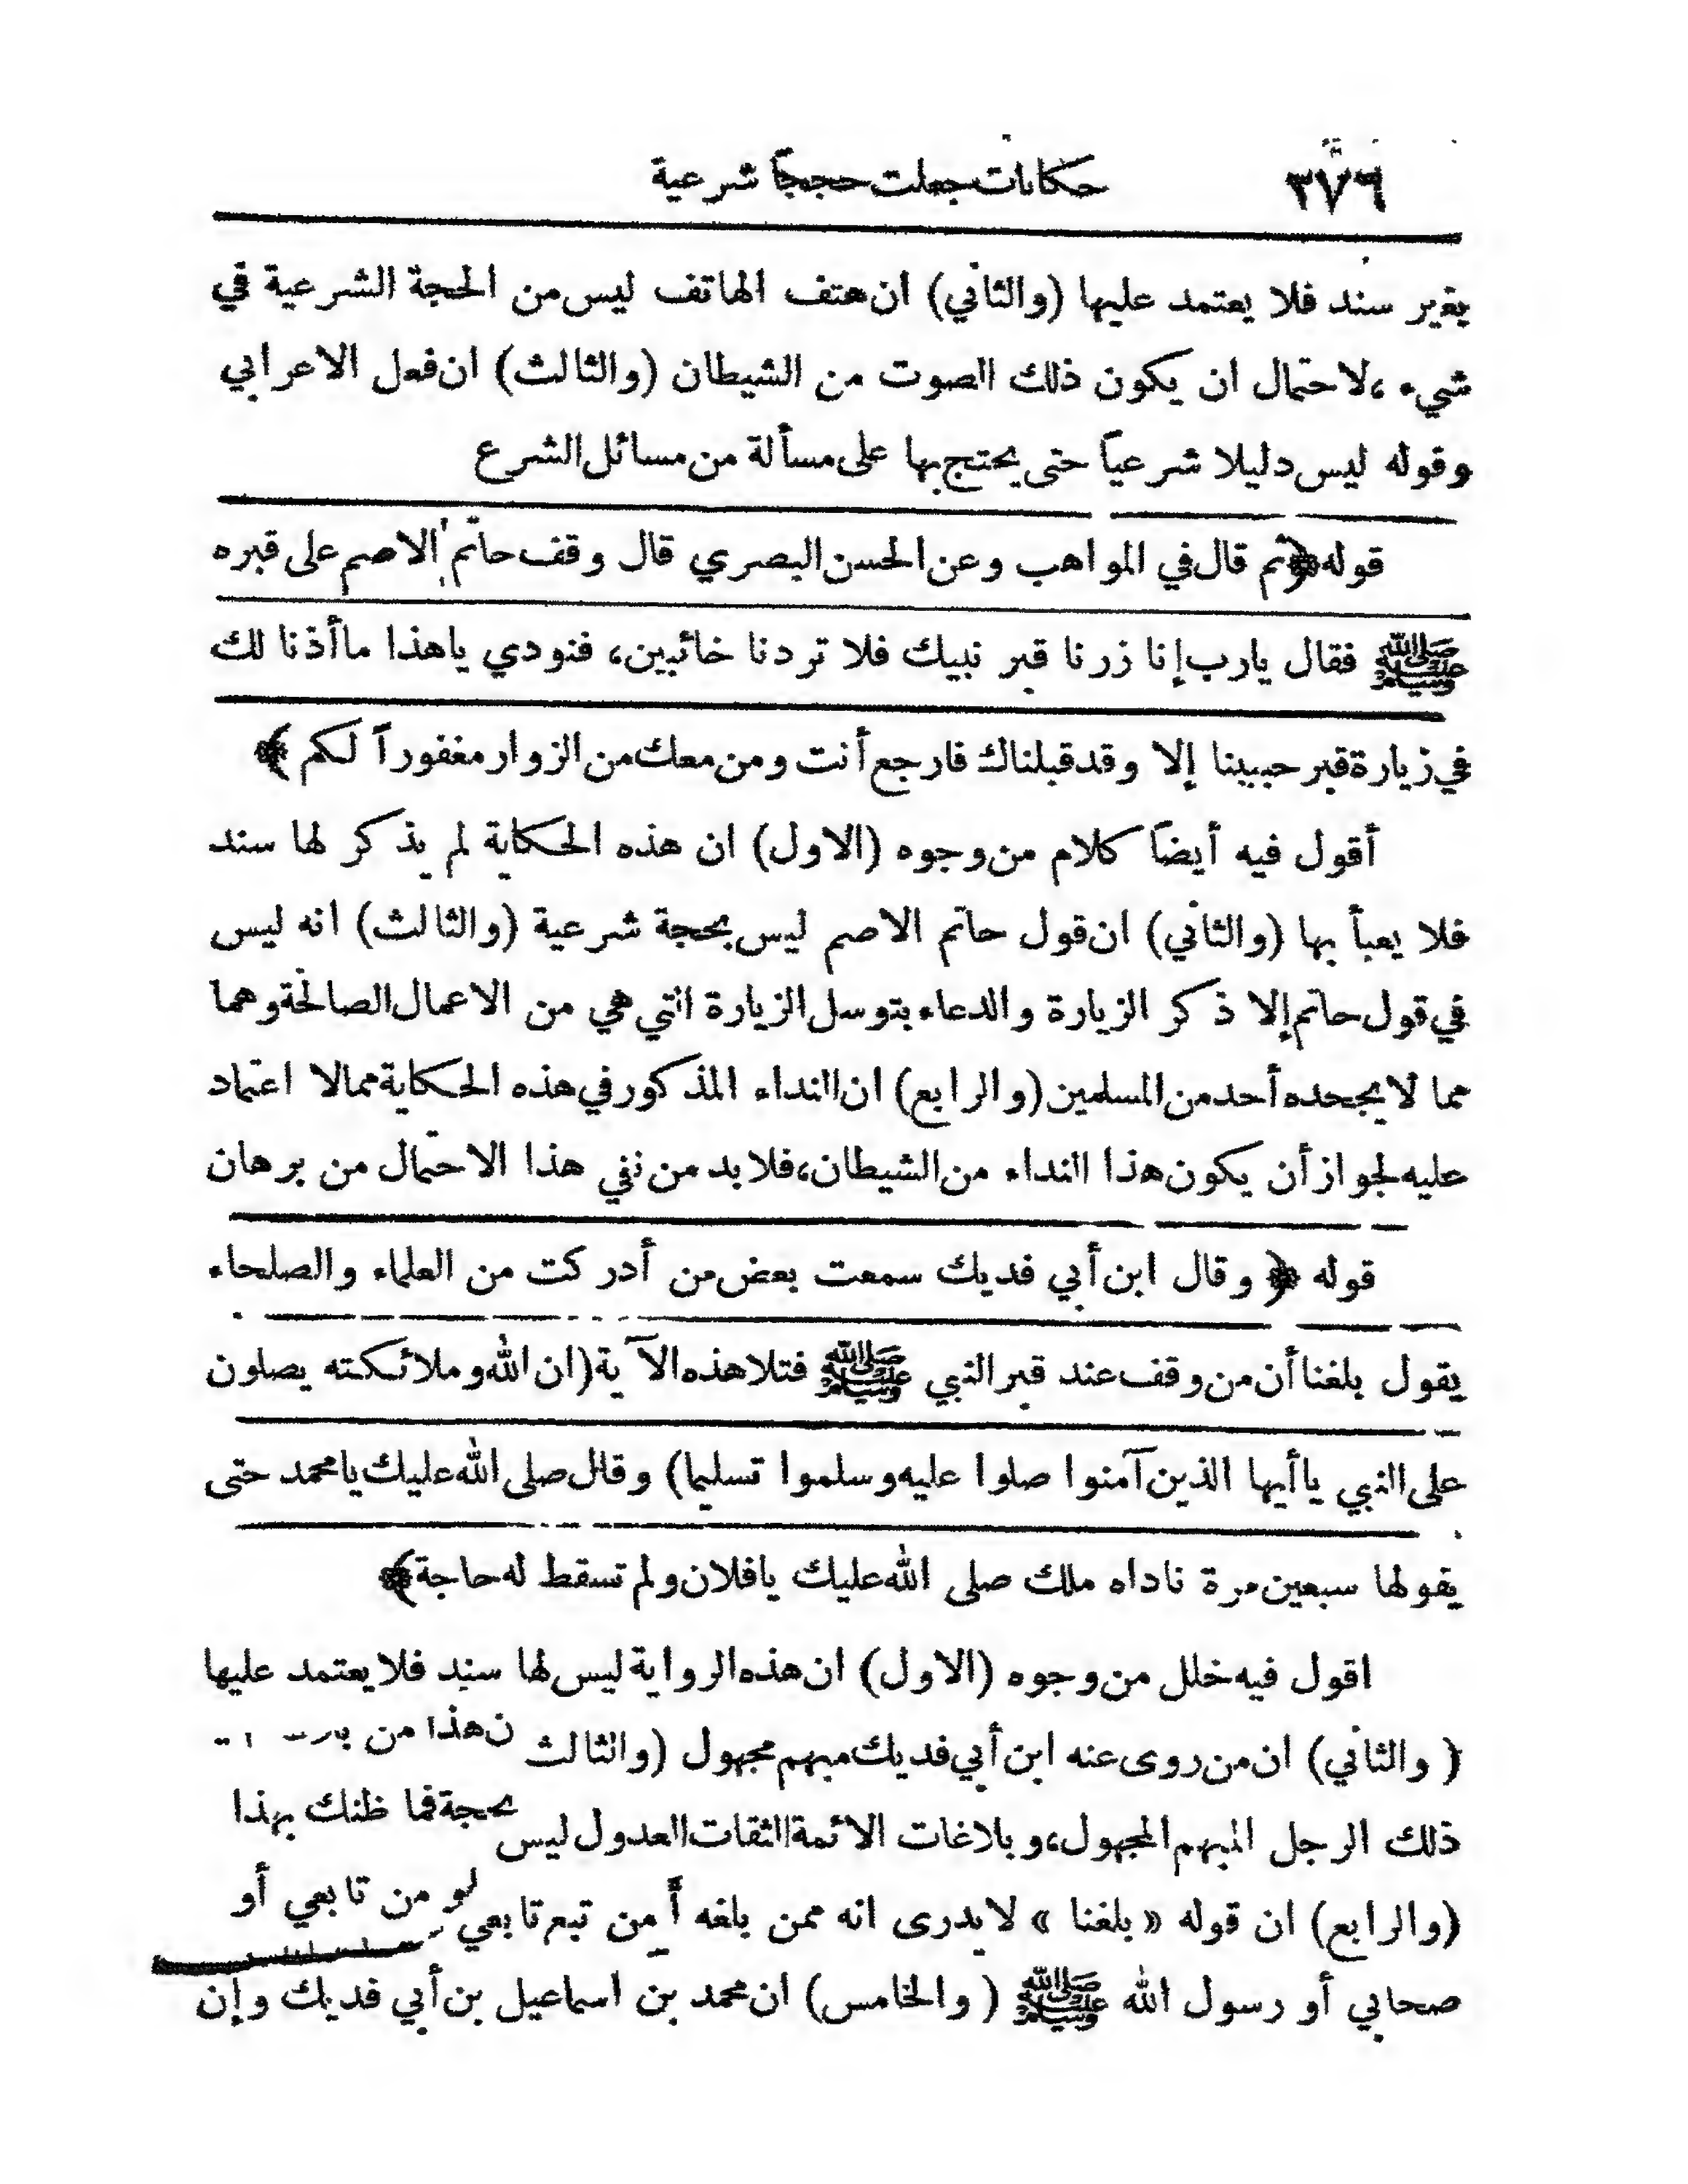 ٣٧٦ حكايات جعلت حججاً شرعية
بغير سند فلا يعتمد عليها (والثاني) ان هتف الهاتف ليس من الحجة الشرعية في
شيء ،لاحتمال ان يكون ذلك الصوت من الشيطان (والثالث) ان فعل الاعرابي
وقوله ليس دليلا شرعياً حتى يحتج بها على مسألة من مسائل الشرع
قوله ﴿ثم قال في المواهب وعن الحسن البصري قال وقف حاتم الاصم على قبره
ﷺ فقال يارب إنا زرنا قبر نبيك فلا تردنا خائبين، فنودي ياهذا ماأذنا لك
في زيارة قبر حبيبنا إلا وقد قبلناك فارجع أنت ومن معك من الزوار مغفوراً لكم ﴾
أقول فيه أيضاً كلام من وجوه (الاول) ان هذه الحكاية لم يذكر لها سند
فلا يعبأ بها (والثاني) ان قول حاتم الاصم ليس بحجة شرعية (والثالث) انه ليس
في قول حاتم إلا ذكر الزيارة والدعاء بتوسل الزيارة التي هي من الاعمال الصالحة وهما
مما لا يجحده أحد من المسلمين (والرابع) ان النداء المذكور في هذه الحكاية مما لا اعتماد
عليه لجواز أن يكون هذا النداء من الشيطان،فلا بد من نفي هذا الاحتمال من برهان
قوله ﴿ وقال ابن أبي فديك سمعت بعض من أدركت من العلماء والصلحاء
يقول بلغنا أن من وقف عند قبر النبي ﷺ فتلا هذه الآية (ان الله وملائكته يصلون
على النبي ياأيها الذين آمنوا صلوا عليه وسلموا تسليما) وقال صلى الله عليك يامحمد حتى
يقولها سبعين مرة ناداه ملك صلى الله عليك يافلان ولم تسقط له حاجة﴾
اقول فيه خلل من وجوه (الاول) ان هذه الرواية ليس لها سند فلا يعتمد عليها
( والثاني) ان من روى عنه ابن أبي فديك مبهم مجهول (والثالث ن هذا من
ذلك الرجل المبهم المجهول،وبلاغات الائمة الثقات العدول ليس بحجة فما ظنك بهذا
(والرابع) ان قوله « بلغنا » لا يدرى انه ممن بلغه أ من تبع تابعي و من تابعي أو
صحابي أو رسول الله ﷺ ( والخامس) ان محمد بن اسماعيل بن أبي فديك وإن